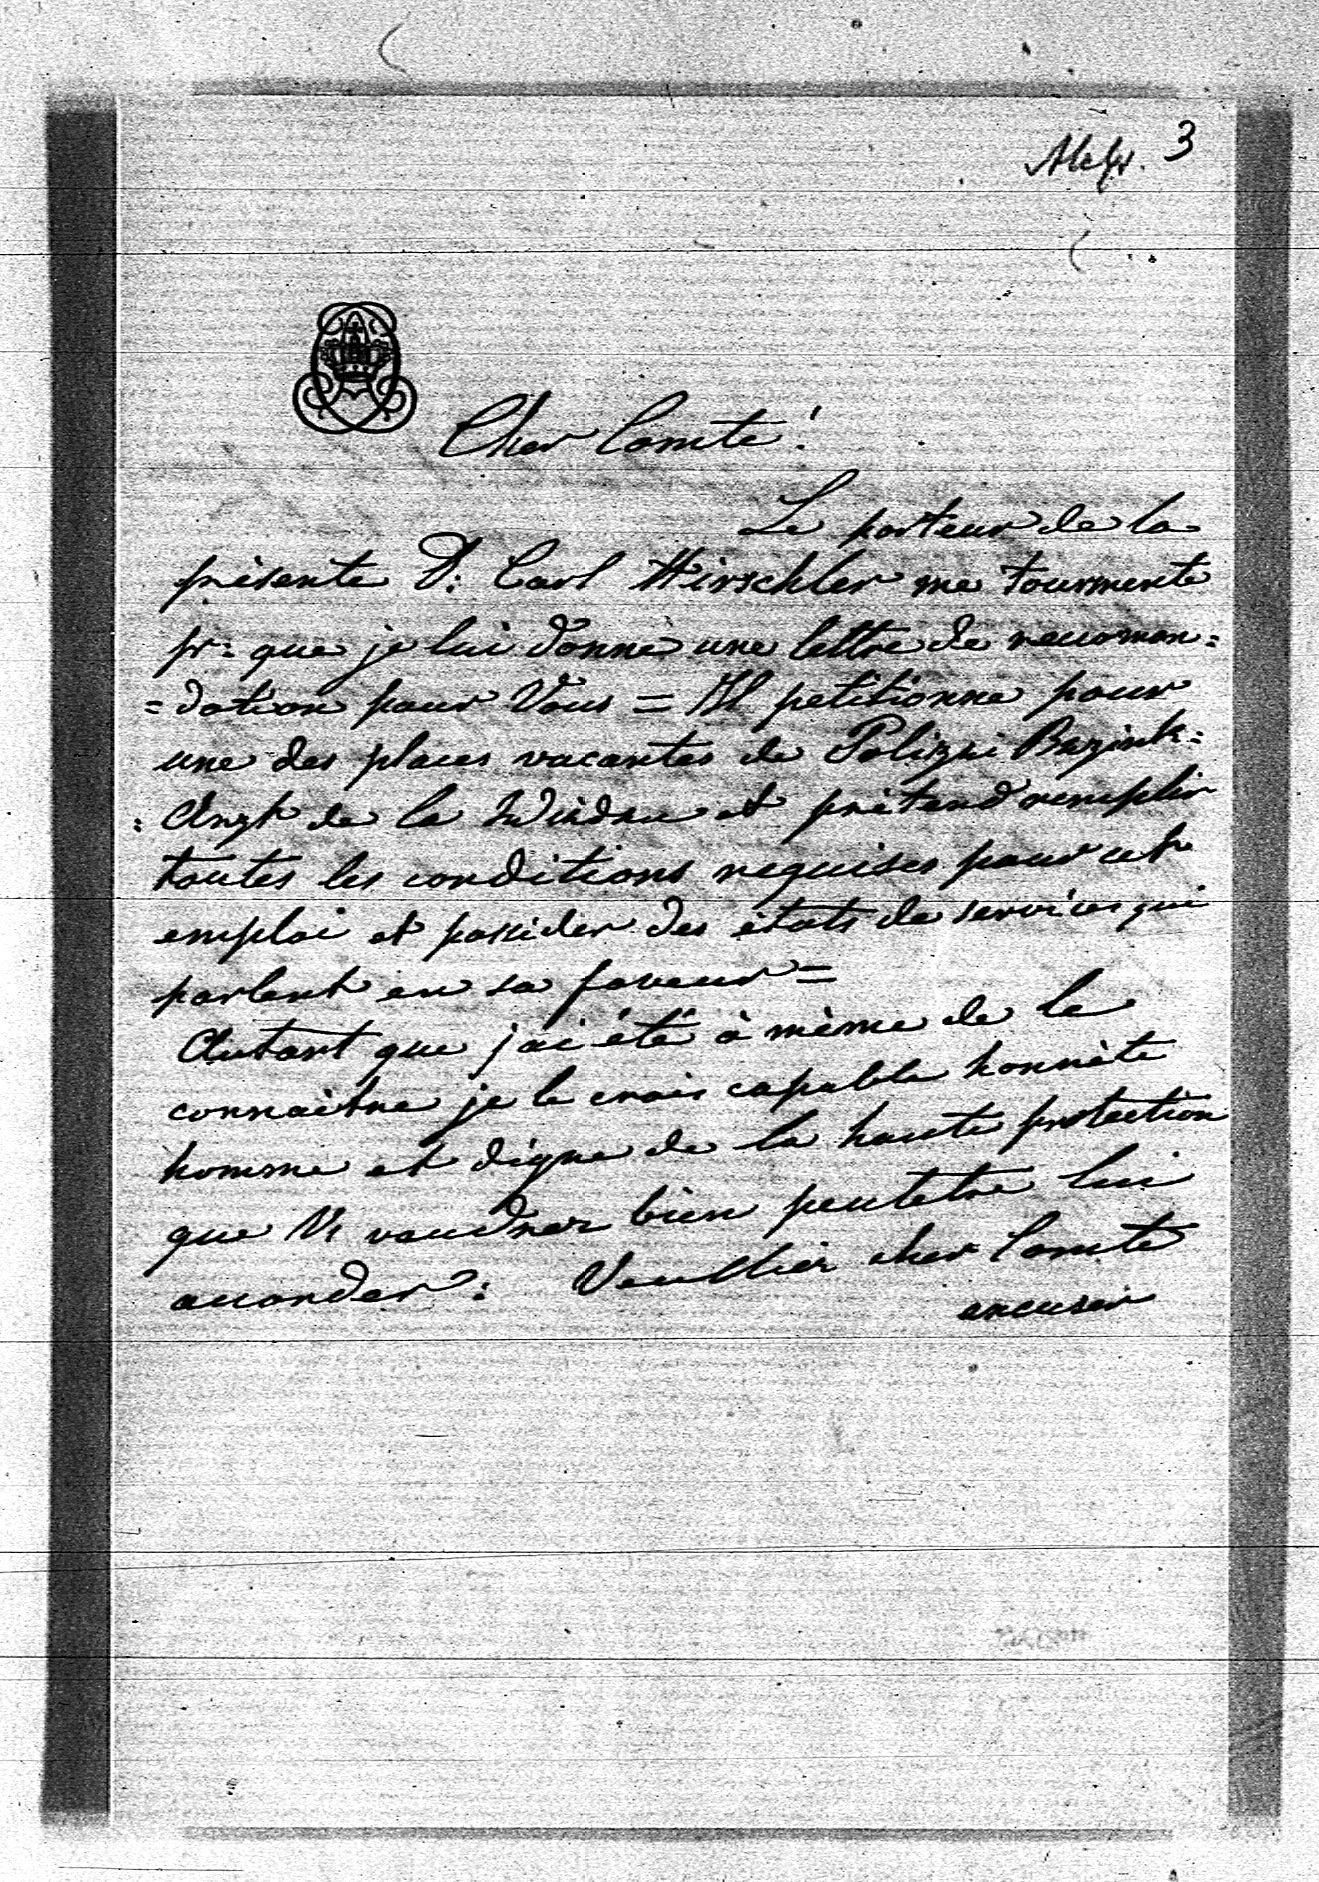 3
Cher Comte!
Le porteur de la
présente Dr: Carl Hirschler me tourmente
pr: que je lui donne une lettre de recoman=
=dation pour Vous = Il petitionne pour
une des places vacantes de Polizei Bezirk=
=Arzt de la et prétend remplir
toutes les conditions requises pour cet
emploi et posséder des états de services qui
parlent en sa faveur =
Autant que j'ai été à même de le
connaître je le crois capable honnête
homme et digne de la haute protection
que Vs voudrez bien peutetre lui
accorder: Veuilliez cher Comte
excuser